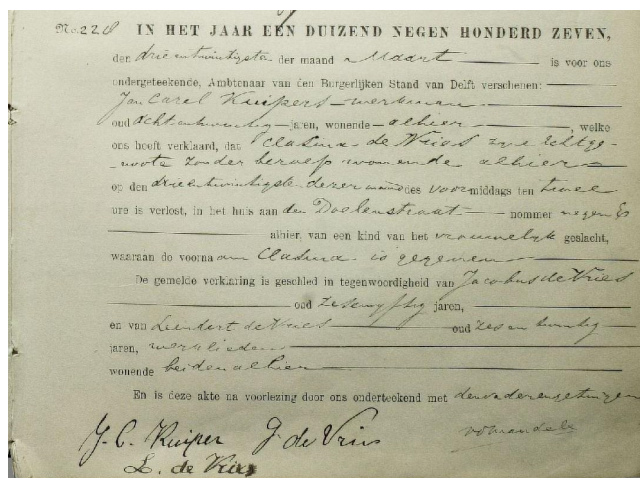 No. 228 IN HET JAAR EEN DUIZEND NEGEN HONDERD ZEVEN,
den drieentwintigste der maand Maart is voor ons
ondergeteekende, Ambtenaar van den Burgerlijken Stand van Delft verschenen:
Jan Carel Kuipers werkman
oud achtentwintig jaren, wonende alhier, welke
ons heeft verklaard, dat Clasina de Vries zijne Echtge-
noote zonder beroep wonende alhier
op den drieentwintigste dezer maand des voormiddags ten twee
ure is verlost, in het huis aan den Doelenstraat nommer negen
alhier, van een kind van het vrouwelijk geslacht,
waaraan de voornaam Clasina is gegeven
De gemelde verklaring is geschied in tegenwoordigheid van Jacobus de Vries
oud zesenvyftig jaren,
en van Leendert de Vries oud zesentwintig
jaren, werklieden
wonende beiden alhier
En is deze akte na voorlezing door ons onderteekend met den vader en getuigen
J. C. Kuiper J. de Vries
L. de Vries